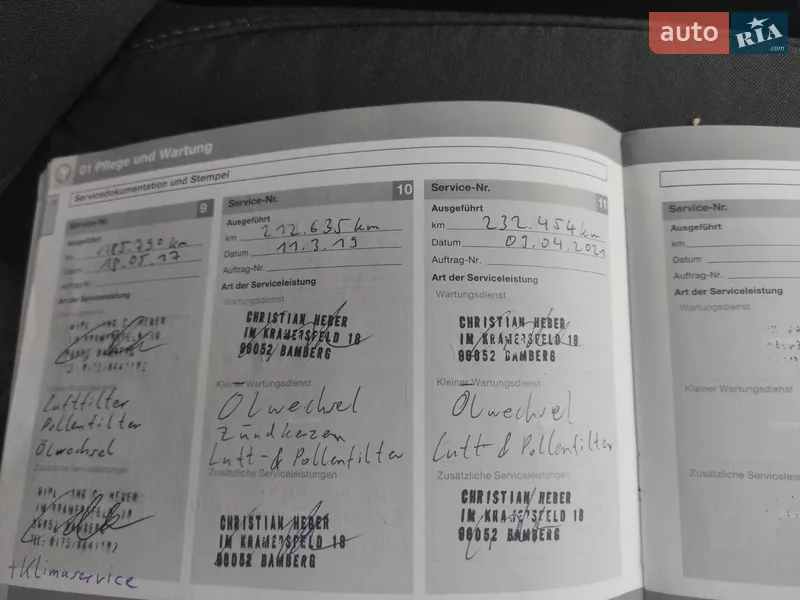 auto RIA .com
01 Pflege und Wartung
Servicedokumentation und Stempel
Service-Nr. 9
Ausgeführt
km 185.790 km
Datum 18.05.17
Auftrag-Nr.
Art der Serviceleistung
Luftfilter
Pollenfilter
Ölwechsel
Zusätzliche Serviceleistungen
+Klimaservice
Service-Nr. 10
Ausgeführt
km 212.635 km
Datum 11.3.19
Auftrag-Nr.
Art der Serviceleistung
Wartungsdienst
CHRISTIAN HEBER
IM KRAMERSFELD 18
96052 BAMBERG
Kleiner Wartungsdienst
Ölwechsel
Zündkerzen
Luft- & Pollenfilter
Zusätzliche Serviceleistungen
CHRISTIAN HEBER
IM KRAMERSFELD 18
96052 BAMBERG
Service-Nr. 11
Ausgeführt
km 232.454 km
Datum 09.04.2021
Auftrag-Nr.
Art der Serviceleistung
Wartungsdienst
CHRISTIAN HEBER
IM KRAMERSFELD 18
96052 BAMBERG
Kleiner Wartungsdienst
Ölwechsel
Luft- & Pollenfilter
Zusätzliche Serviceleistungen
CHRISTIAN HEBER
IM KRAMERSFELD 18
96052 BAMBERG
Service-Nr.
Ausgeführt
km
Datum
Auftrag-Nr.
Art der Serviceleistung
Wartungsdienst
Kleiner Wartungsdienst
Zusätzliche